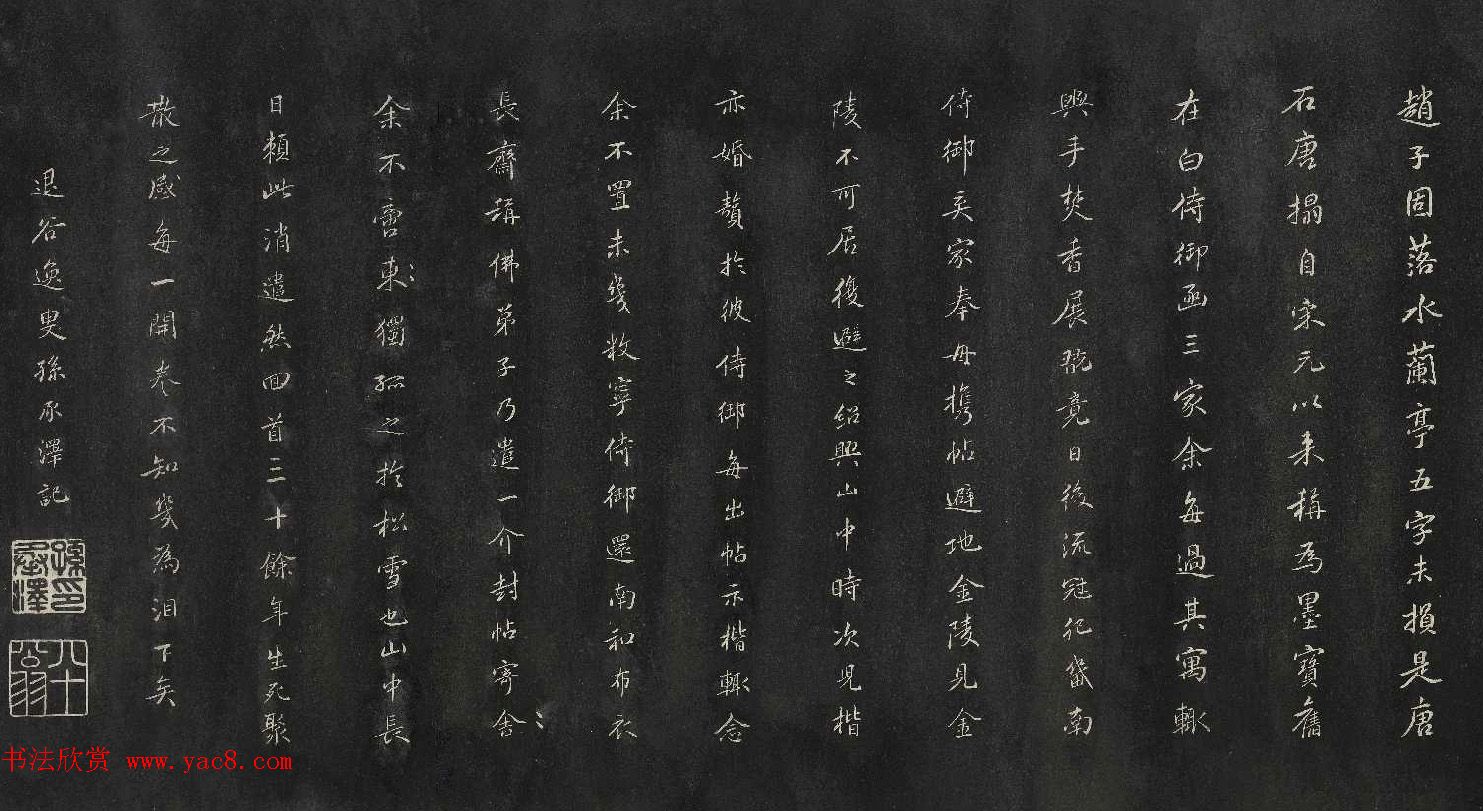 趙子固落水蘭亭五字未損是唐
石唐搨自宋元以来稱為墨寶舊
在白侍御函三家余每過其寓輙
與手焚香展翫竟日後流冦犯畿南
侍御弃家奉母携帖避地金陵見金
陵不可居復避之紹興山中時次児楷
亦婚贅於彼侍御每出帖示楷輙念
余不置未幾敉寧侍御還南和布衣
長齋稱佛弟子乃遣一介封帖寄舎
余不啻東獨孤之於松雪也山中長
日賴此消遣然回首三十餘年生死聚
散之感每一開卷不知幾為泪下矣
退谷逸叟孫承澤記
孫承澤印
八十公羽
书法欣赏 www.yac8.com